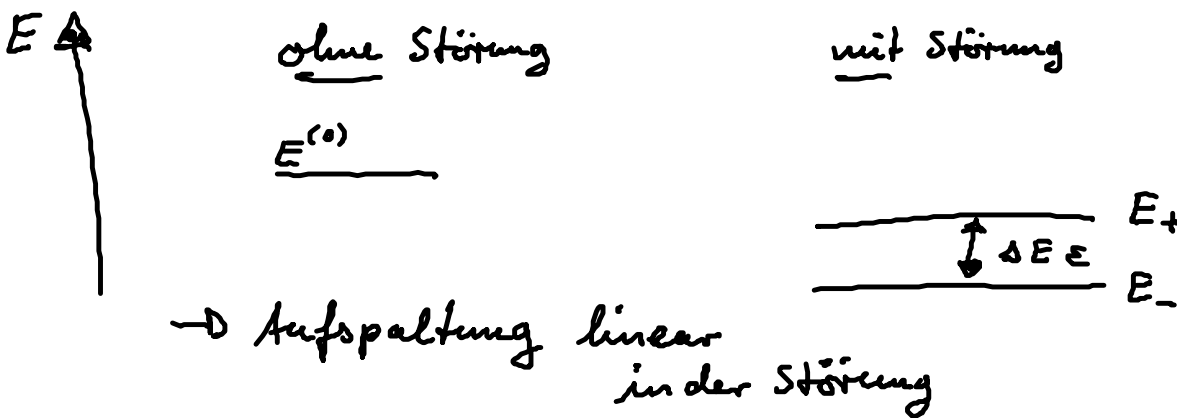 E ohne Störung mit Störung
E^(0)
E+
ΔE ε
E-
→ Aufspaltung linear
in der Störung